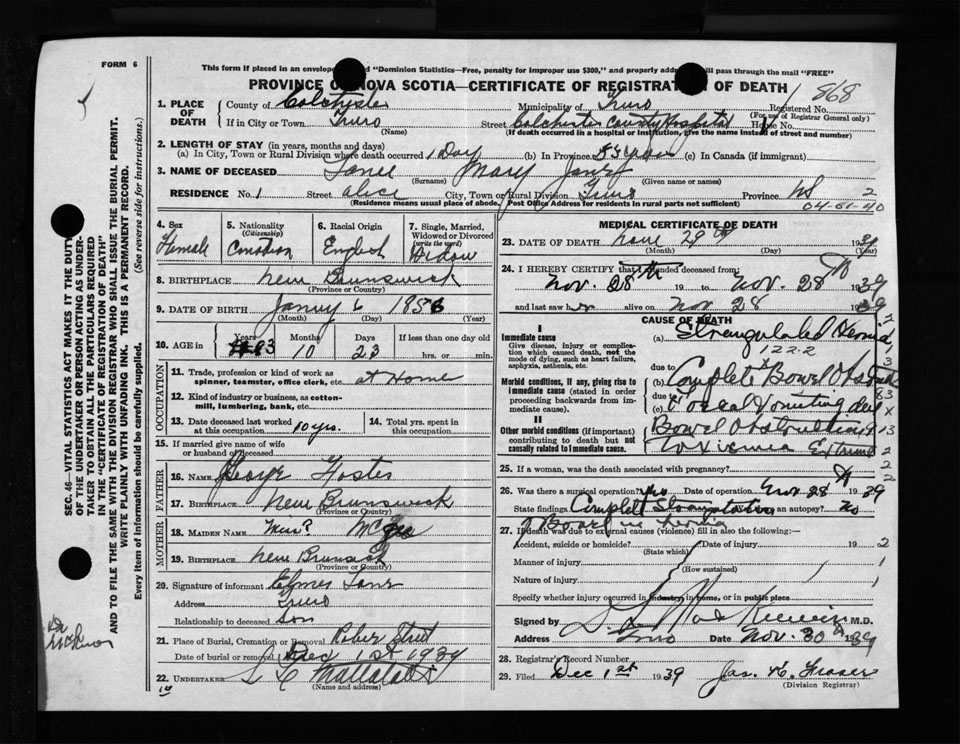 FORM 6
This form if placed in an envelope "Dominion Statistics—Free, penalty for improper use $300," and properly addressed will pass through the mail "FREE"
PROVINCE OF NOVA SCOTIA—CERTIFICATE OF REGISTRATION OF DEATH
868
1. PLACE OF DEATH
County of Colchester Municipality of Truro Registered No.
(For use of Registrar General only)
If in City or Town Truro Street Colchester County Hospital House No.
(Name) (If death occurred in a hospital or institution, give the name instead of street and number)
2. LENGTH OF STAY (in years, months and days)
(a) In City, Town or Rural Division where death occurred 1 Day (b) In Province (c) In Canada (if immigrant)
3. NAME OF DECEASED Mary Jane
(Surname) (Given name or names)
RESIDENCE No. 1 Street Alice City, Town or Rural Division Truro Province NS 2
(Residence means usual place of abode, Post Office Address for residents in rural parts not sufficient)
04-61-40
4. Sex 5. Nationality 6. Racial Origin 7. Single, Married, Widowed or Divorced
(Citizenship) (write the word)
Female Canadian English Widow
8. BIRTHPLACE New Brunswick
(Province or Country)
9. DATE OF BIRTH Janury 6 1856
(Month) (Day) (Year)
10. AGE in Years Months Days If less than one day old
83 10 23 hrs. or min.
OCCUPATION
11. Trade, profession or kind of work as spinner, teamster, office clerk, etc. at Home
12. Kind of industry or business, as cotton-mill, lumbering, bank, etc.
13. Date deceased last worked at this occupation 10 yrs. 14. Total yrs. spent in this occupation
15. If married give name of wife or husband of deceased
FATHER
16. NAME George Foster
17. BIRTHPLACE New Brunswick
(Province or Country)
MOTHER
18. MAIDEN NAME
19. BIRTHPLACE New Brunswick
(Province or Country)
20. Signature of informant
Address Truro
Relationship to deceased Son
21. Place of Burial, Cremation or Removal Robie Street
Date of burial or removal Dec 1st 1939
22. UNDERTAKER
(Name and address)
MEDICAL CERTIFICATE OF DEATH
23. DATE OF DEATH Nove 29th 1939
(Month) (Day) (Year)
24. I HEREBY CERTIFY that I attended deceased from:
Nov. 28th 19 to Nov. 28th 1939
and last saw her alive on Nov 28 1939
CAUSE OF DEATH
I
Immediate cause
Give disease, injury or complication which caused death, not the mode of dying, such as heart failure, asphyxia, asthenia, etc.
(a) Strangulated Hernia
122-2
due to
Morbid conditions, if any, giving rise to immediate cause (stated in order proceeding backwards from immediate cause).
(b) Complete Bowel Obstruction
due to
(c) Foecal Vomiting due
II
Other morbid conditions (if important) contributing to death but not causally related to immediate cause.
Bowel Obstruction
Toxicmia Extrime
25. If a woman, was the death associated with pregnancy?
26. Was there a surgical operation? Yes Date of operation Nov 28th 1939
State findings Complete Strangulation Was there an autopsy? No
of Bowel in hernia
27. If death was due to external causes (violence) fill in also the following:—
Accident, suicide or homicide? Date of injury 19
(State which)
Manner of injury
(How sustained)
Nature of injury
Specify whether injury occurred in industry, in home, or in public place
Signed by M.D.
Address Truro Date Nov. 30 1939
28. Registrar's Record Number
29. Filed Dec 1st 1939 Jas. Fraser
(Division Registrar)
SEC. 46—VITAL STATISTICS ACT MAKES IT THE DUTY OF THE UNDERTAKER OR PERSON ACTING AS UNDERTAKER TO OBTAIN ALL THE PARTICULARS REQUIRED IN THE "CERTIFICATE OF REGISTRATION OF DEATH"
AND TO FILE THE SAME WITH THE DIVISION REGISTRAR WHO SHALL ISSUE THE BURIAL PERMIT.
WRITE PLAINLY WITH UNFADING INK. THIS IS A PERMANENT RECORD.
Every item of information should be carefully supplied. (See reverse side for instructions.)